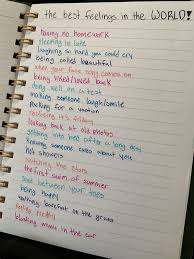 the best feelings in the WORLD!
having no homework
sleeping in late
laughing so hard you could cry
being called beautiful
when your fave song comes on
being liked/loved back
doing well on a test
making someone laugh/smile
packing for a vacation
realising it's friday
looking back at old photos
getting into bed after a long day
knowing someone cares about you
hot showers
watching the stars
the first swim of summer
sand between your toes
being happy
walking barefoot on the grass
feeling pretty
blasting music in the car